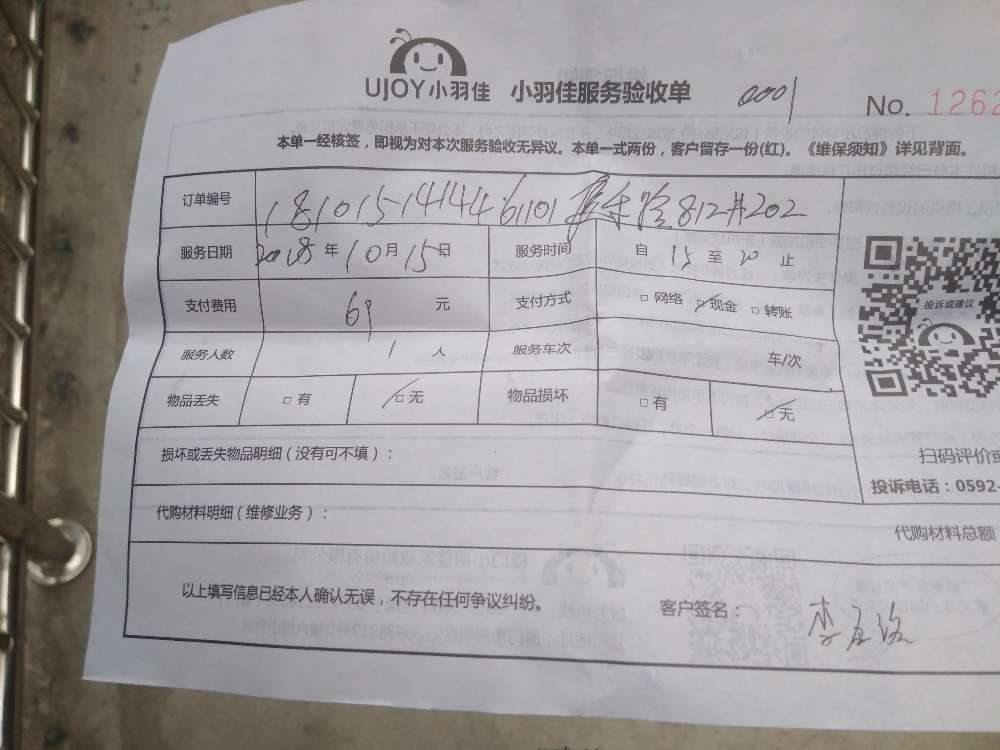 UJOY小羽佳 小羽佳服务验收单 0001 No. 1262
本单一经核签，即视为对本次服务验收无异议。本单一式两份，客户留存一份(红)。《维保须知》详见背面。
订单编号 1810151414461101 812#202
服务日期 2018年10月15日 服务时间 自 15 至 20 止
支付费用 69 元 支付方式 □网络 □现金 □转账
投诉或建议
服务人数 1 人 服务车次 车/次
物品丢失 □有 □无 物品损坏 □有 □无
损坏或丢失物品明细（没有可不填）：
扫码评价或
投诉电话：0592-
代购材料明细（维修业务）：
代购材料总额
以上填写信息已经本人确认无误，不存在任何争议纠纷。 客户签名：